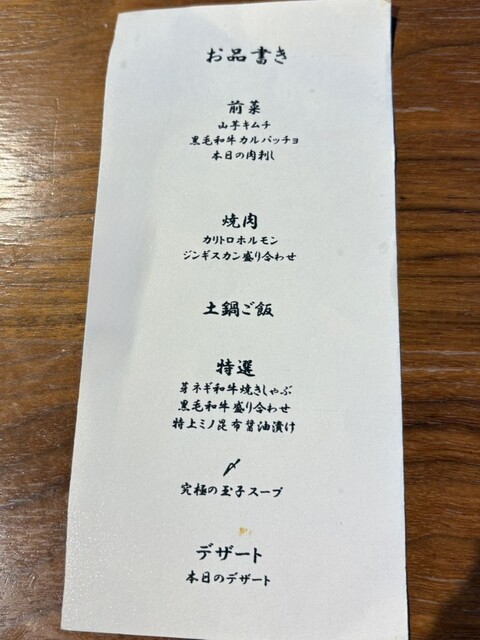 お品書き
前菜
山芋キムチ
黒毛和牛カルパッチョ
本日の肉刺し
焼肉
カリトロホルモン
ジンギスカン盛り合わせ
土鍋ご飯
特選
芽ネギ和牛焼きしゃぶ
黒毛和牛盛り合わせ
特上ミノ昆布醤油漬け
〆
究極の玉子スープ
デザート
本日のデザート